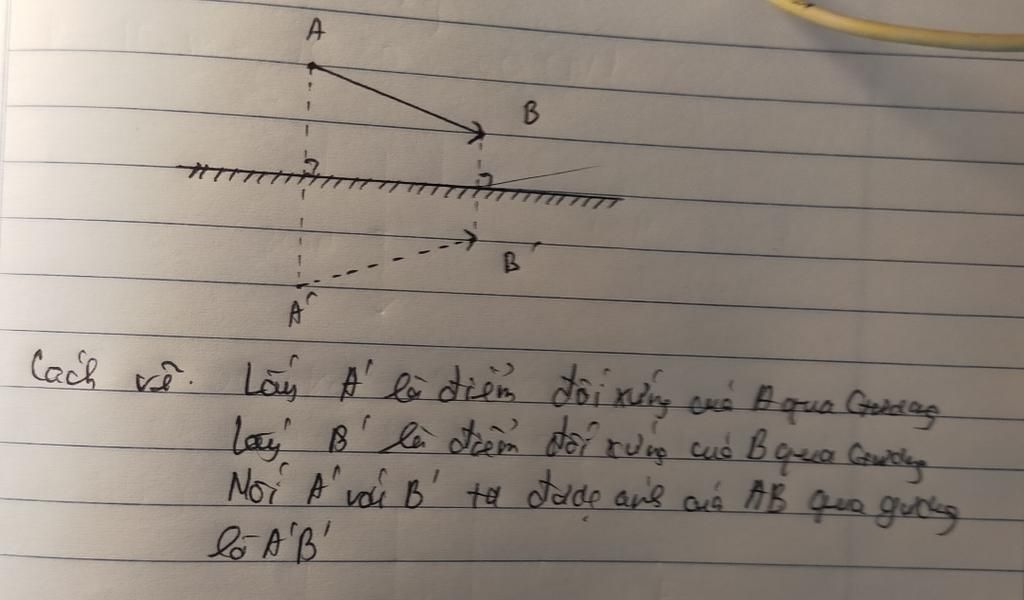 A
B
B'
A'
Cách vẽ. Lấy A' là điểm đối xứng của A qua Gương
Lấy B' là điểm đối xứng của B qua Gương
Nối A' với B' ta được ảnh của AB qua gương
là A'B'